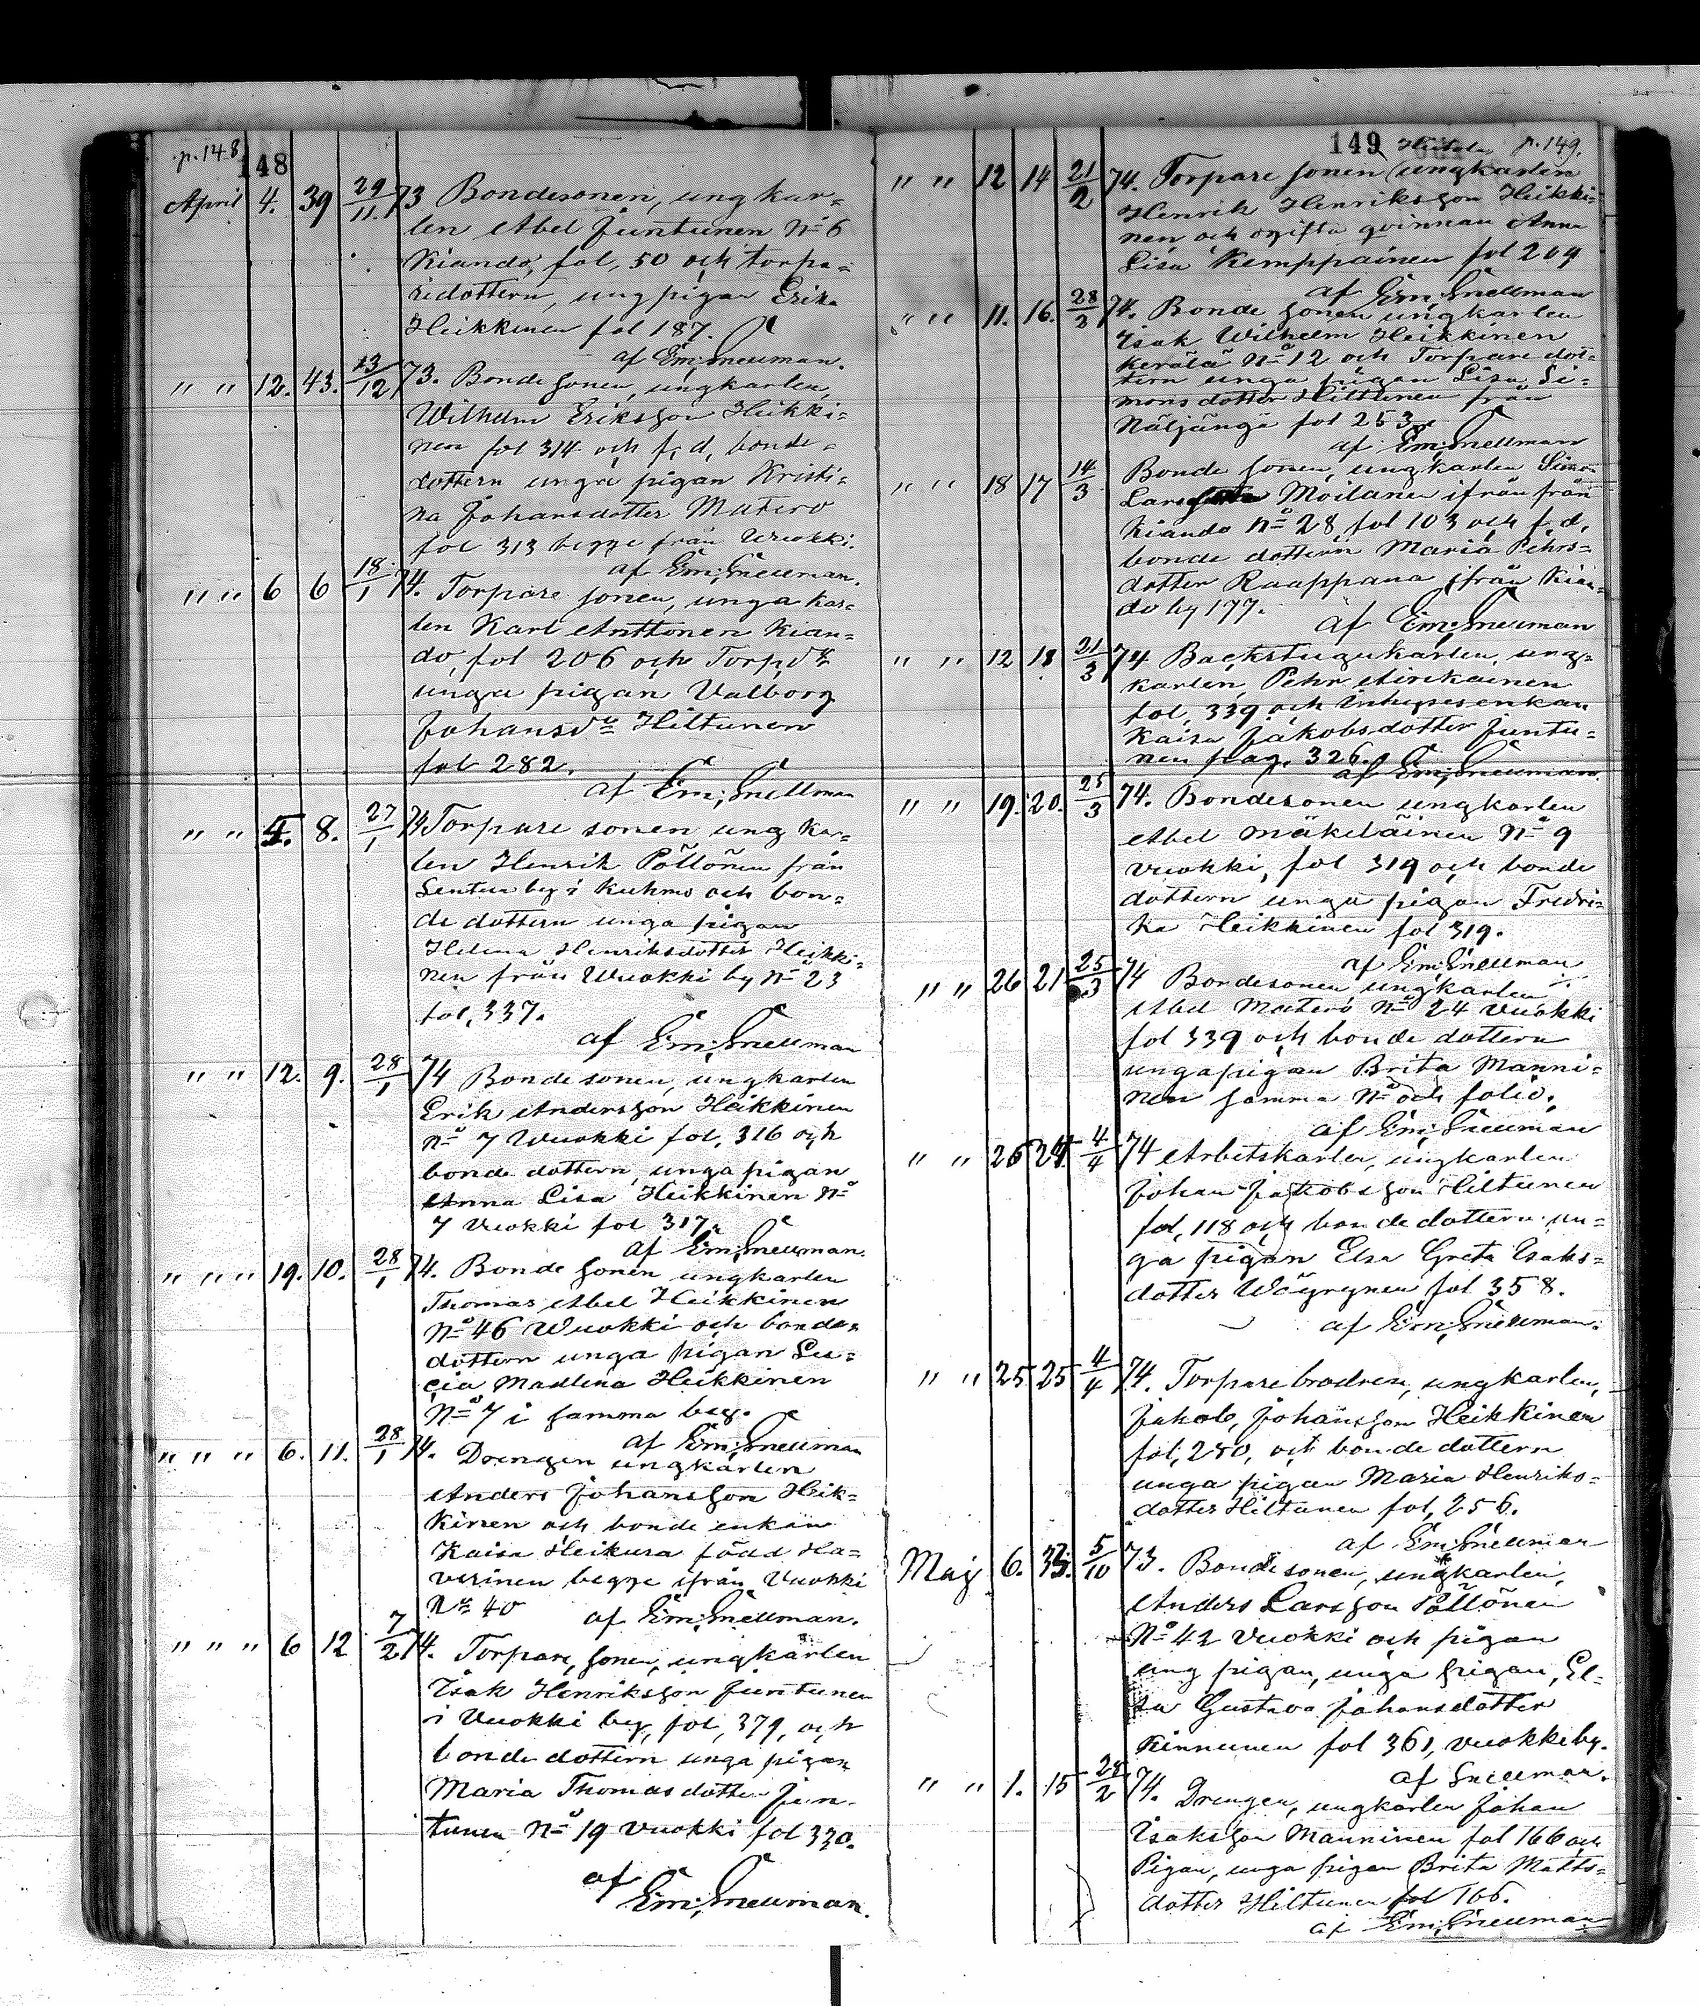 p.148
148
April 4. 39 29/11 73 Bondesonen, ungkar=
len Abel Juntunen No 6
Kiando, fol, 50 och torpa=
redottern, ung pigan Erika
Heikkinen fol 187.
af Em; Snellman.
" " 12. 43. 13/12 73. Bonde sonen, ungkarlen,
Wilhelm Eriksson Heikki=
nen fol 314 och f, d, bonde=
dottern unga pigan Kristi=
na Johansdotter Matero
fol 313 begge från Wuokki.
af Em; Snellman.
" " 6 6 18/1 74. Torpare sonen, unga kar=
len Karl Anttonen Kian=
do, fol 206 och Torp,dr
unga pigan Valborg
Johansdr Hiltunen
fol 282.
af Em; Snellman
" " 8. 27/1 74 Torpare sonen ung kar=
len Henrik Pöllönen från
Sentua by i Kuhmo och bon=
de dottern unga pigan
Helena Henriksdotter Heikki=
nen från Wuokki by No 23
fol, 337.
af Em; Snellman
" " 12. 9. 28/1 74 Bonde sonen, ungkarlen
Erik Andersson Heikkinen
No 7 Wuokki fol, 316 och
bonde dottern, unga pigan
Anna Lisa Heikkinen No
7 Vuokki fol 317.
af Em; Snellman.
" " " 19. 10. 28/1 74. Bonde sonen ungkarlen
Thomas Abel Heikkinen
No 46 Wuokki och bonde=
dottern unga pigan Lu=
cia Madlena Heikkinen
No 7 i samma by.
af Em; Snellman
" " " 6. 11. 28/1 74. Drengen ungkarlen
Anders Johansson Heik=
kinen och bonde enkan
Kaisa Heikura född Ha=
verinen begge ifrån Vuokki
No 40
af Em; Snellman.
" " " 6 12 7/2 74. Torpare, sonen, ungkarlen
Isak Henriksson Juntunen
i Vuokki by, fol, 379, och
bonde dottern unga pigan
Maria Thomasdotter Jun-
tunen No 19 Vuokki fol 330.
af
Em; Snellman.
149 p.149.
" " 12 14 21/2 74. Torpare sonen (ungkarlen
Henrik Henriksson Heikki=
nen och ogifta qvinnan Anna
Lisa Kemppainen fol 209
af Em; Snellman
" " 11. 16. 28/2 74. Bonde sonen ungkarlen
Isak Wilhelm Heikkinen
Kerälä No 12 och Torpare dot=
tern unga pigan Lisa Si=
monsdotter Hiltunen från
Näljängä fol 253.
af Em; Snellman
" " 18 17 14/3 Bonde sonen, ungkarlen Simon
Lars Moilanen ifrån från
Kiando No 28 fol 103 och f, d,
bonde dottern Maria Pehrs=
dotter Raappana ifrån Kian=
do by 177.
af Em; Snellman
" " 12 18 21/3 74 Backstugukarlen, ung=
karlen, Pehr Airikainen
fol, 339 och Inhysesenkan
Kaisa Jakobsdotter Juntu=
nen pag. 326.
af Em; Snellman.
" " 19. 20. 25/3 74. Bondesonen ungkarlen
Abel Mäkeläinen No 9
Vuokki, fol 319 och bonde
dottern unga pigan Fredri=
ka Heikkinen fol 319.
af Em; Snellman
" " 26 21 25/3 74 Bondesonen ungkarlen
Abel Matero No 24 Vuokki
fol 339 och bonde dottern
unga pigan Brita Manni=
nen samma No och folio.
af Em; Snellman
" " 26 24 4/4 74 Arbetskarlen, ungkarlen
Johan Jakobsson Hiltunen
fol, 118 och bonde dottern un=
ga pigan Elsa Greta Isaks=
dotter Wäyrynen fol 358.
af Em; Snellman.
" " 25 25 4/4 74. Torpare brodren, ungkarlen,
Jakob, Johansson Heikkinen
fol, 280, och bonde dottern
unga pigan Maria Henriks=
dotter Hiltunen fol, 256.
af Em; Snellman
Maj 6. 5/10 73. Bondesonen, ungkarlen,
Anders Larsson Pöllönen
No 42 Vuokki och pigan
ung pigan, unga pigan, El=
sa Gustava Johansdotter
Kinnunen fol 361, Vuokki by.
af Snellman.
" " 1. 15 28/2 74. Drengen, ungkarlen Johan
Isaksson Manninen fol 166 och
Pigan, unga pigan Brita Matts=
dotter Hiltunen fol 166.
af Em; Snellman